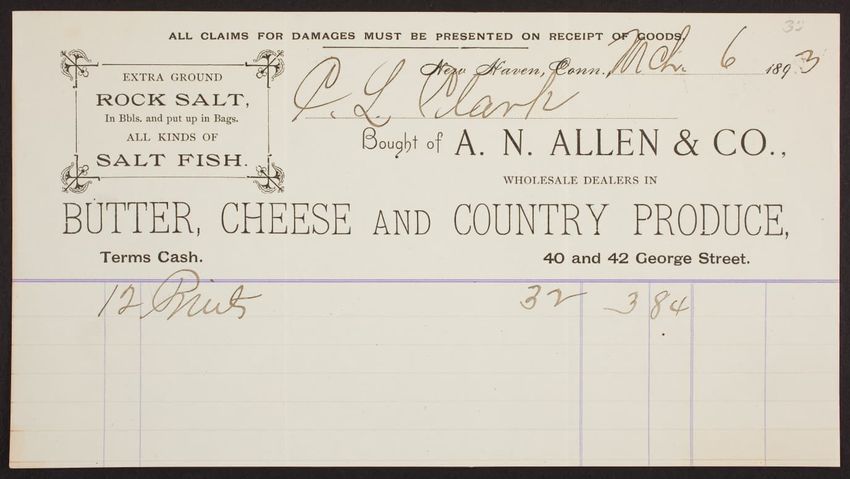 32
ALL CLAIMS FOR DAMAGES MUST BE PRESENTED ON RECEIPT OF GOODS.
New Haven, Conn., Mch. 6 1893
EXTRA GROUND
ROCK SALT,
In Bbls. and put up in Bags.
ALL KINDS OF
SALT FISH.
C. L. Clark
Bought of A. N. ALLEN & CO.,
WHOLESALE DEALERS IN
BUTTER, CHEESE AND COUNTRY PRODUCE,
Terms Cash. 40 and 42 George Street.
12 Prints 32 3 84